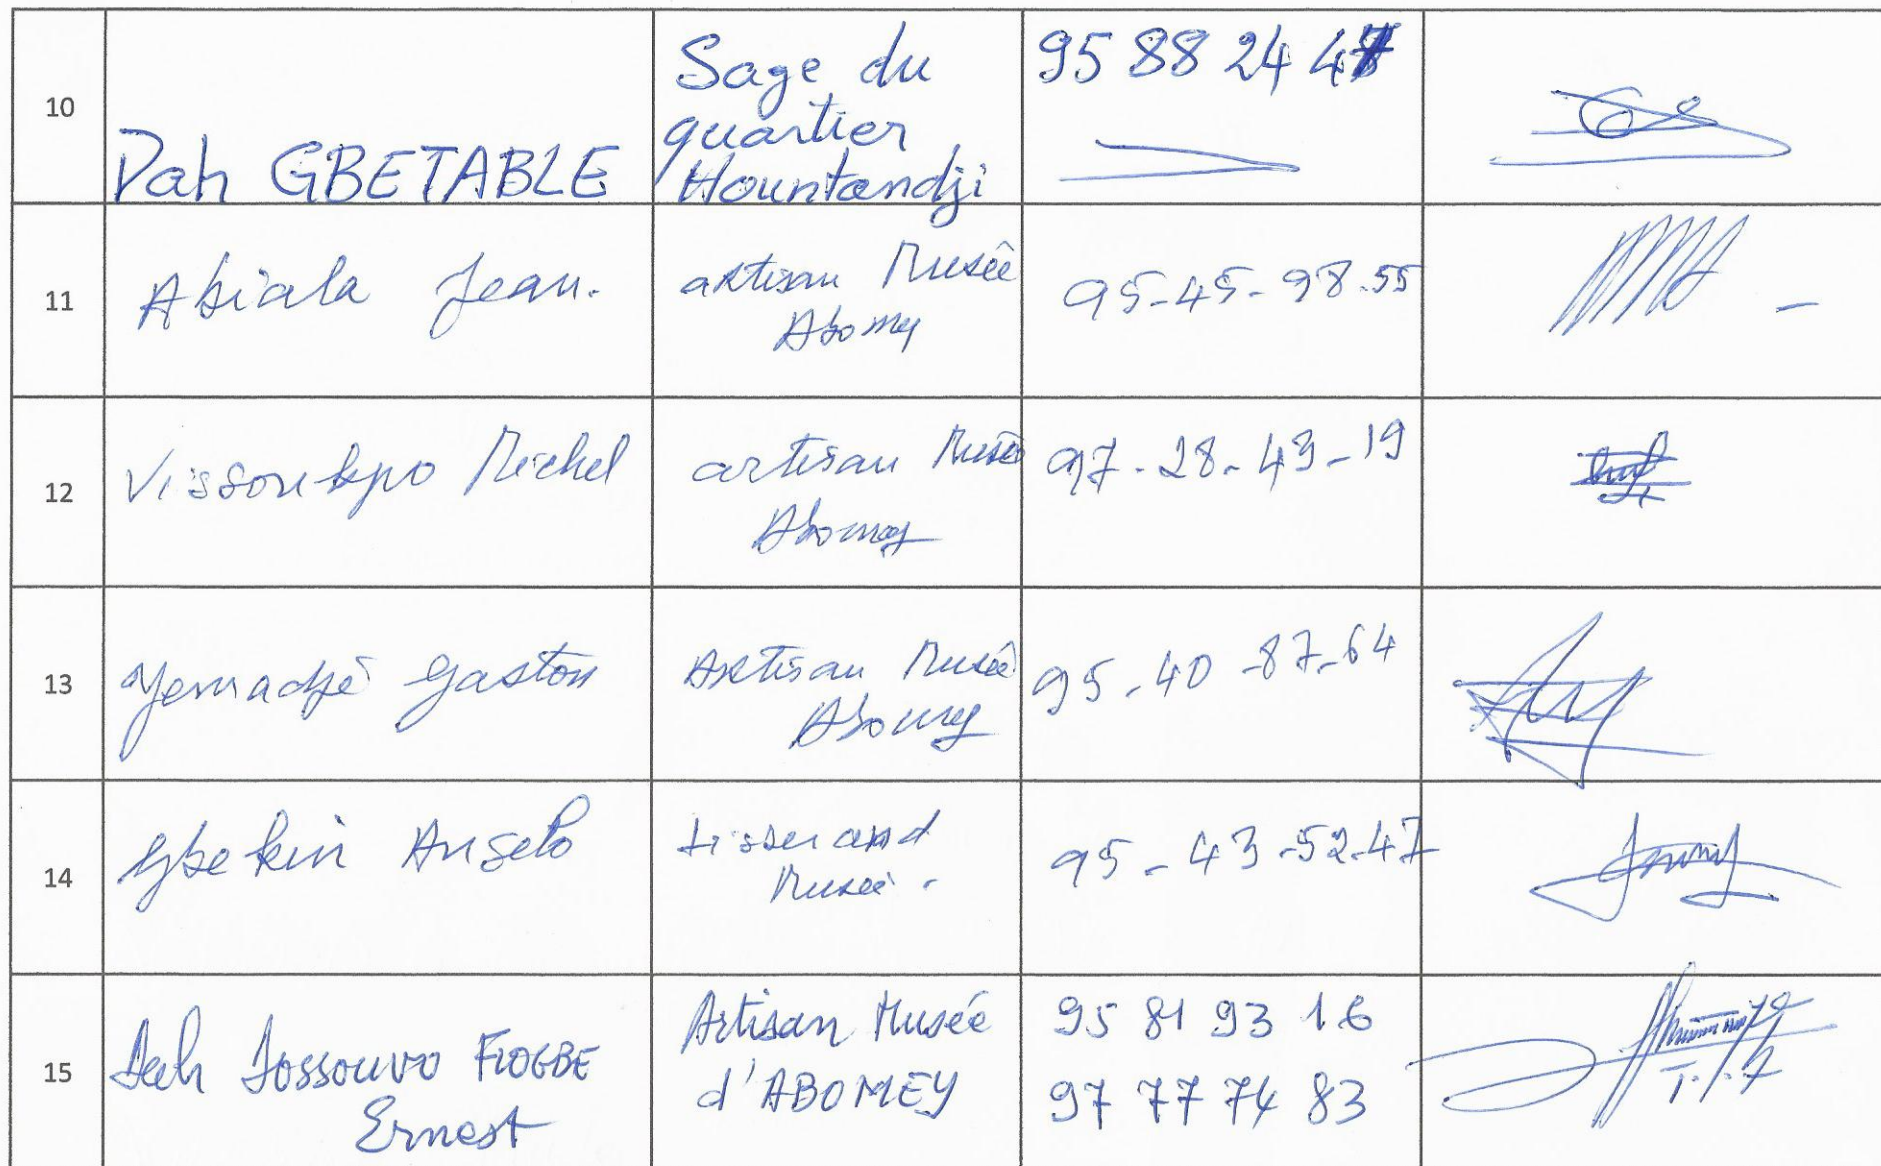 10
Dah GBETABLE
Sage du
quartier
Hountandji
95 88 24 47
11
Abiala Jean.
artisan Musée
Abomey
95-45-98-55
12
Vissoukpo Michel
artisan Musée
Abomey
97-28-43-19
13
Yemadjè Gaston
Artisan Musée
Abomey
95-40-87-64
14
Gbekin Angelo
tisserand
Musée.
95-43-52-47
15
Dah Jossouvo FIOGBE
Ernest
Artisan Musée
d'ABOMEY
95 81 93 16
97 77 74 83